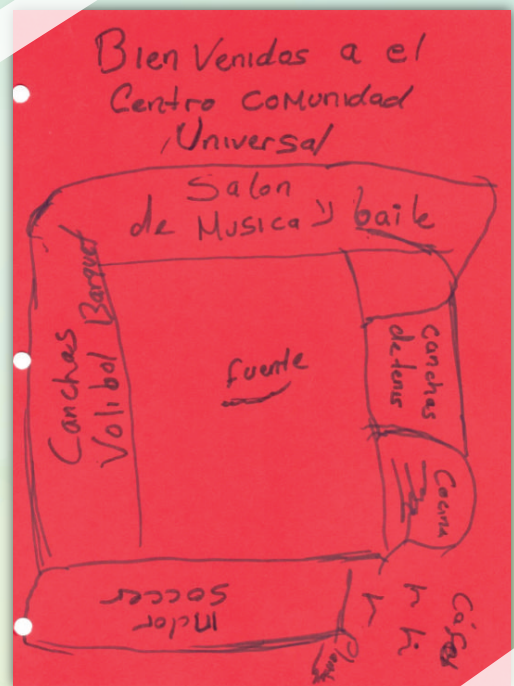 BienVenidos a el
Centro Comunidad
Universal
Salon
de Musica y baile
Canchas
Volibol Barquet
fuente
canchas
de tenis
Cocina
Indor
soccer